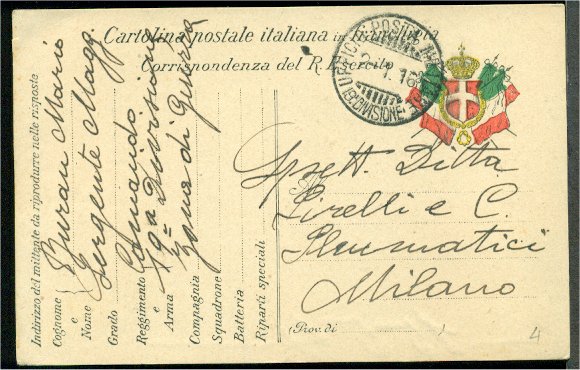 Cartolina postale italiana in franchigia
Corrispondenza del R. Esercito
UFFICIO POSTA MI
DIVISIONE
Spett. Ditta
Pirelli e C.
Pneumatici
Milano
(Prov. di
4
Indirizzo del mittente da riprodurre nelle risposte
Cognome Buran Mario
e
Nome Sergente Magg.
Grado
Reggimento Comando
e
Arma 19ª Divisione
Compagnia Zona di Guerra
Squadrone
Batteria
Riparti speciali